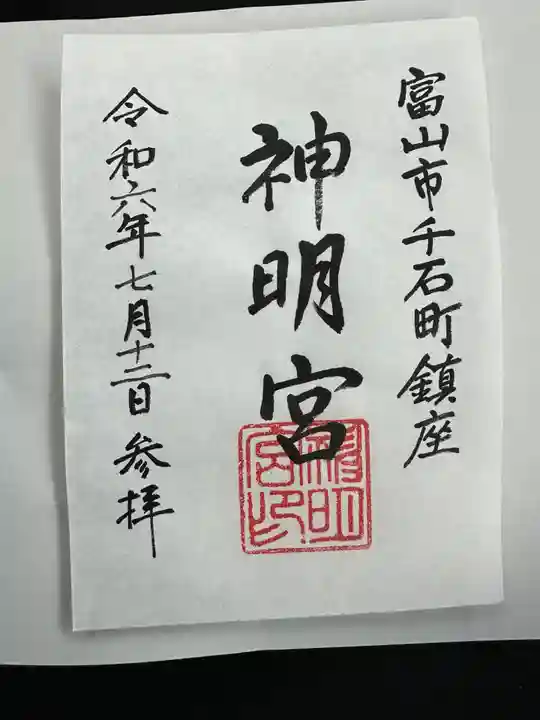 富山市千石町鎮座
神明宮
神明宮印
令和六年七月十二日 参拝